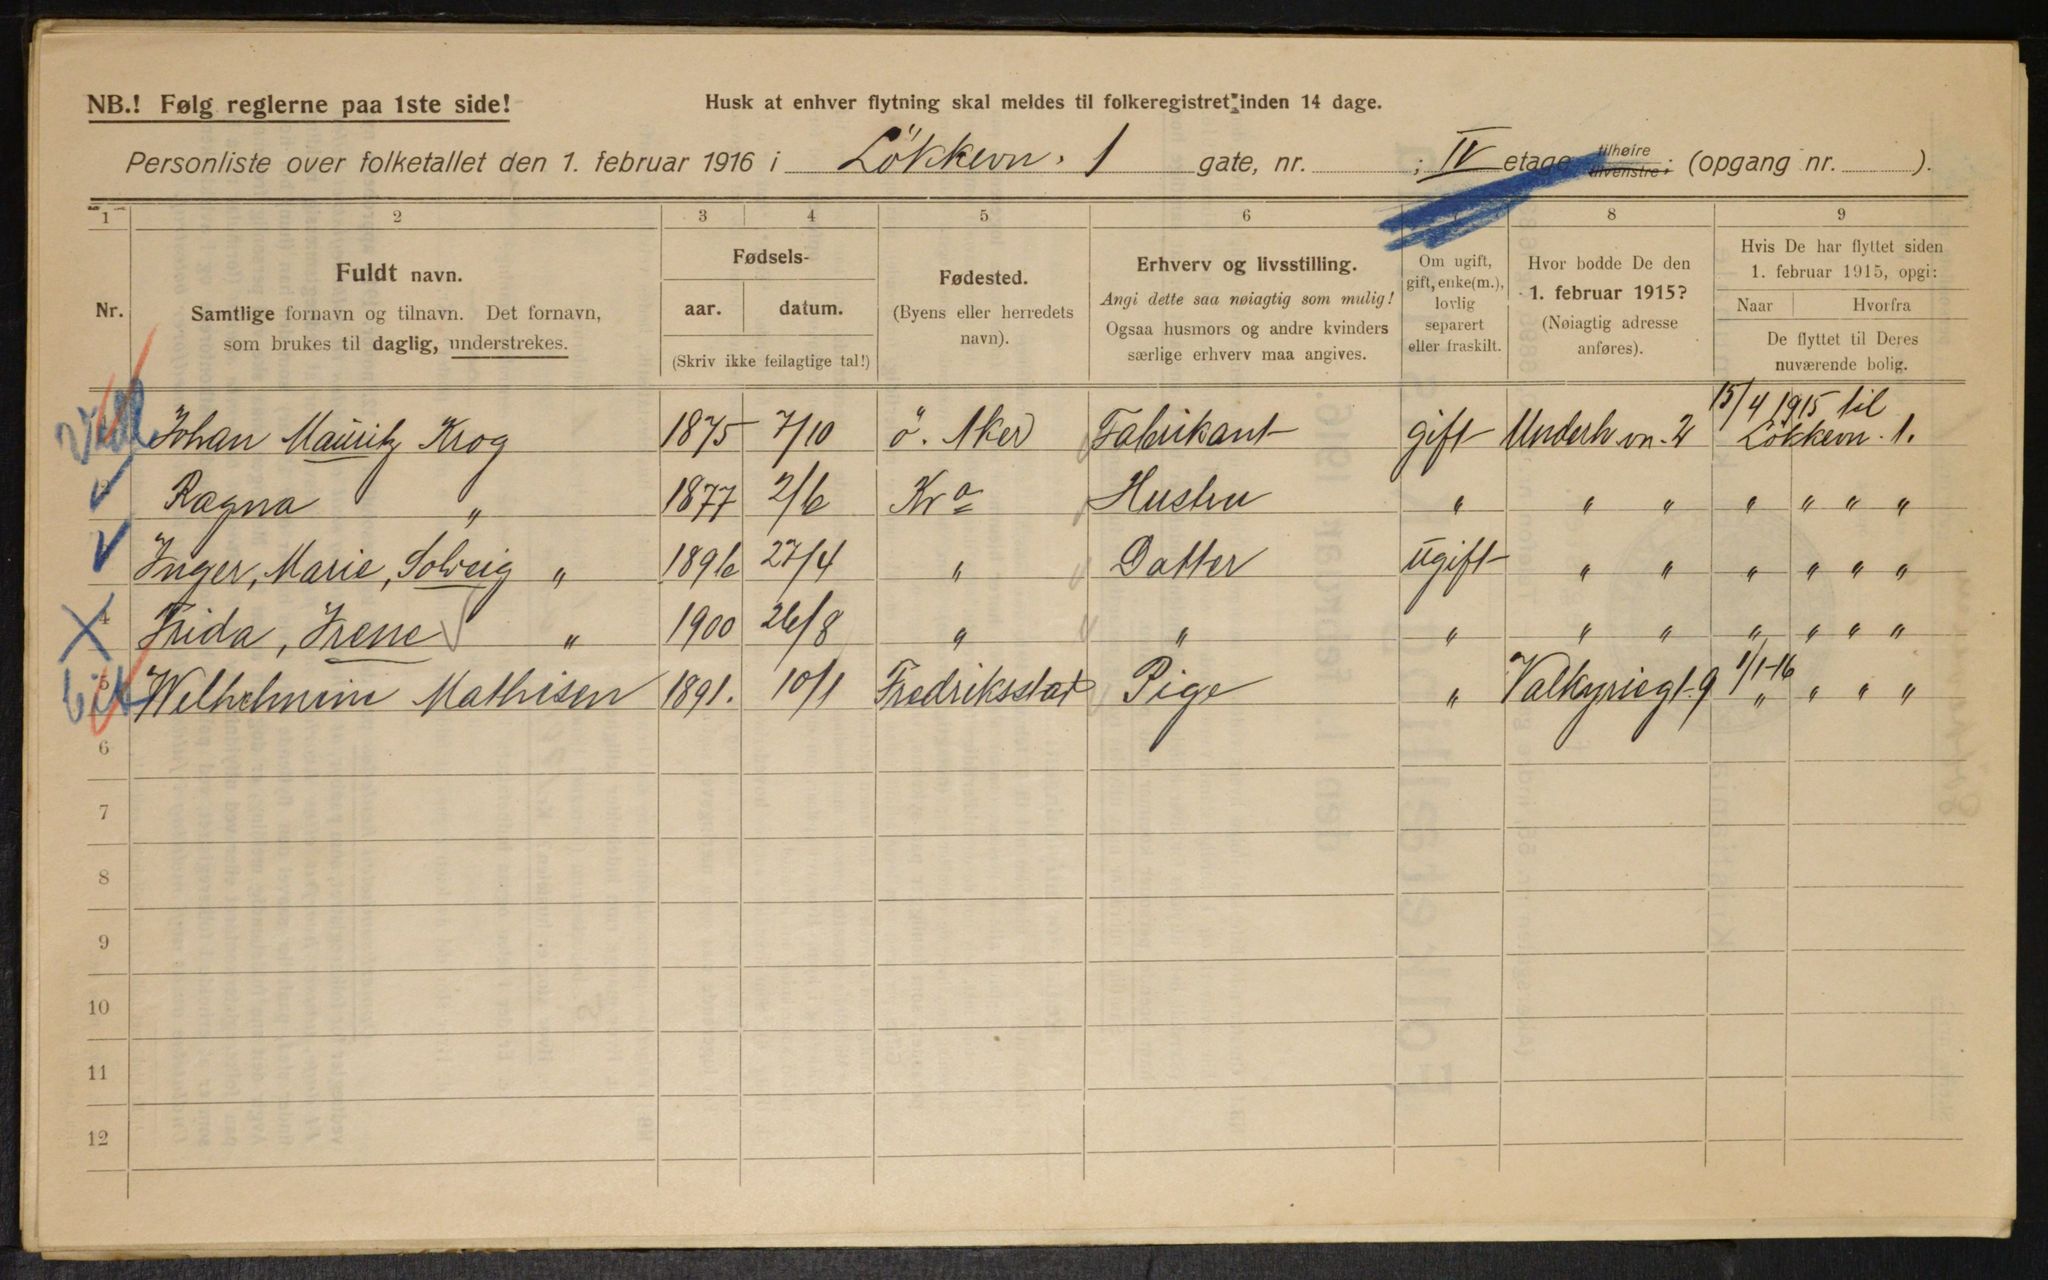 NB.! Følg reglerne paa 1ste side!
Husk at enhver flytning skal meldes til folkeregistret inden 14 dage.
Personliste over folketallet den 1. februar 1916 i Lökkevn. 1 gate, nr. ; IV etage tilhøire tilvenstre; (opgang nr. ).
1 2 3 4 5 6 7 8 9
Nr.
Fuldt navn.
Samtlige fornavn og tilnavn. Det fornavn,
som brukes til daglig, understrekes.
Fødsels-
aar. datum.
(Skriv ikke feilagtige tal!)
Fødested.
(Byens eller herredets
navn).
Erhverv og livsstilling.
Angi dette saa nøiagtig som mulig!
Ogsaa husmors og andre kvinders
særlige erhverv maa angives.
Om ugift,
gift, enke(m.),
lovlig
separert
eller fraskilt.
Hvor bodde De den
1. februar 1915?
(Nøiagtig adresse
anføres).
Hvis De har flyttet siden
1. februar 1915, opgi:
Naar Hvorfra
De flyttet til Deres
nuværende bolig.
15/4 1915 til
Johan Mauritz Krog 1875 7/10 ö. Aker Fabrikant gift Underh.vn. 2 Lökkevn. 1.
Ragna " 1877 2/6 Kra Hustru " " " " " " "
Inger, Marie, Solveig " 1896 27/4 " Datter ugift " " " " " "
4 Frida, Irene " 1900 26/8 " " " " " " " " "
1/1-16
5 Wilhelmine Mathisen 1891. 10/1 Fredriksstad Pige " Valkyriegt. 9 " " " "
6
7
8
9
10
11
12